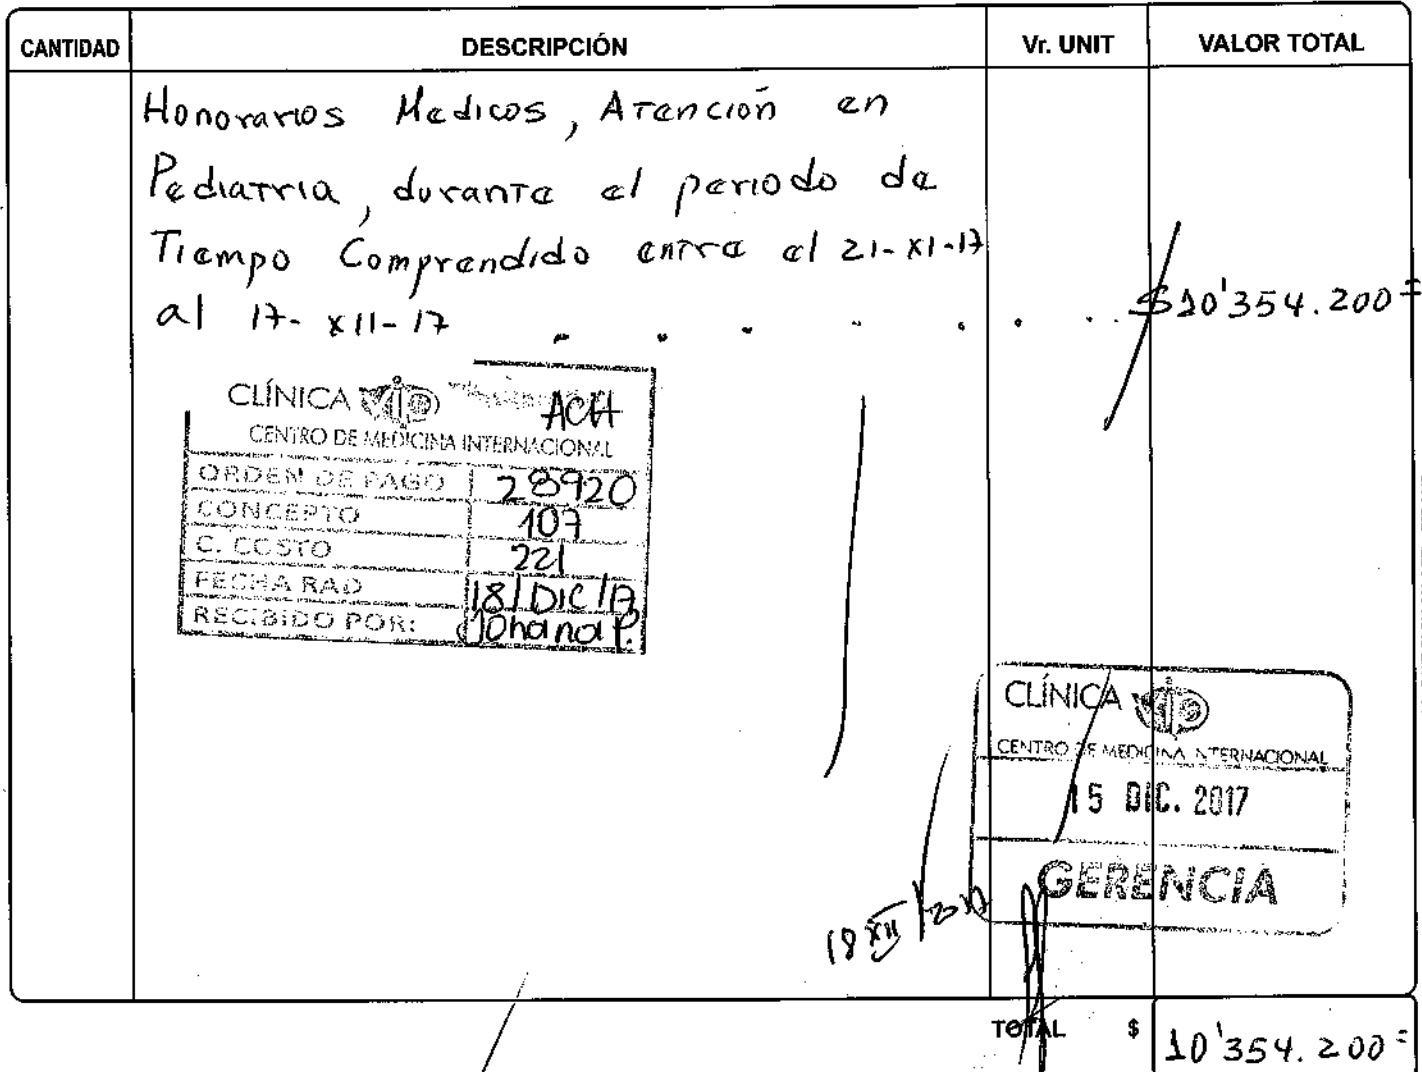 CANTIDAD DESCRIPCIÓN Vr. UNIT VALOR TOTAL
Honorarios Medicos, Atención en
Pediatria, durante el periodo de
Tiempo Comprendido entre el 21-XI-17
al 17-XII-17 . . . . . . . . $10'354.200=
CLÍNICA VIP ACH
CENTRO DE MEDICINA INTERNACIONAL
ORDEN DE PAGO 28920
CONCEPTO 107
C. COSTO 221
FECHA RAD 18/DIC/17
RECIBIDO POR: Johana P.
CLÍNICA VIP
CENTRO DE MEDICINA INTERNACIONAL
15 DIC. 2017
GERENCIA
18 XII 2017
TOTAL $ 10'354.200=